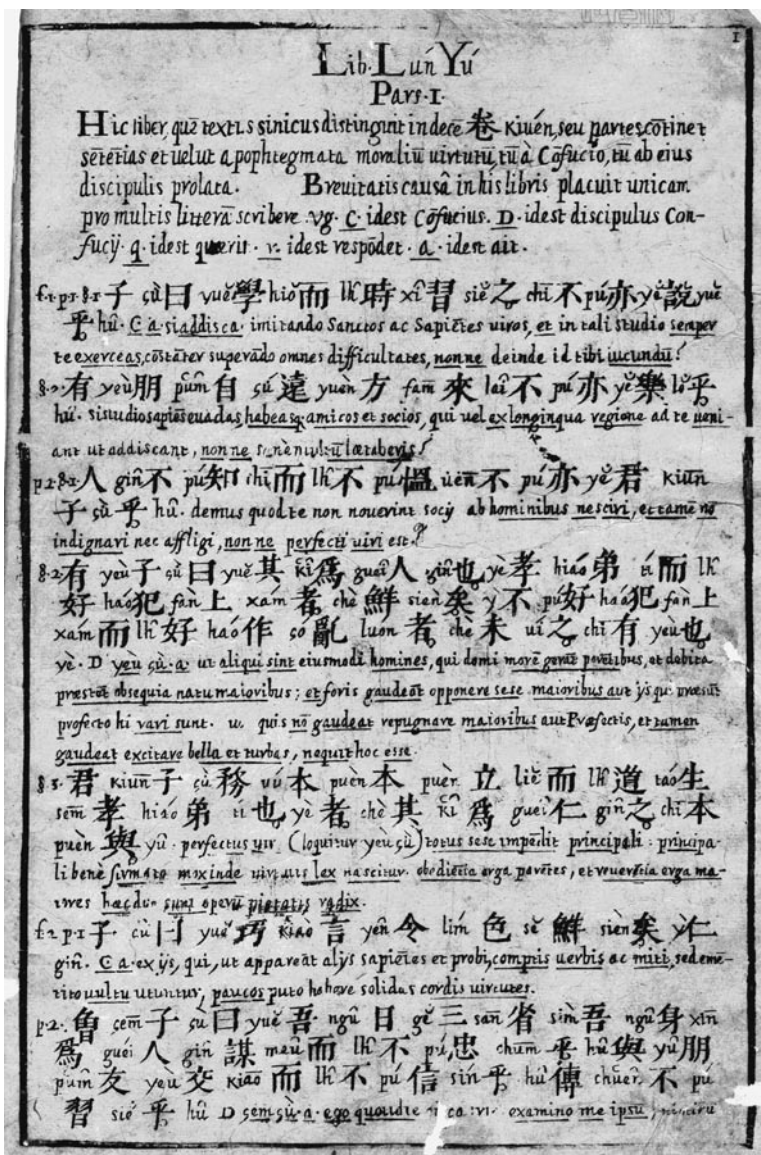 1
Lib. Lún Yú
Pars. 1.
Hic liber, quē textus sinicus distinguit in decē 卷 Kiuén, seu partes, cōtinet
sētētias et uelut apophtegmata moraliū uirtutū, tū à Cōfucio, tū ab eius
discipulis prolata. Brevitatis causâ in his libris placuit unicam
pro multis litterā scribere. vg. C. idest Cōfucius. D. idest discipulus Con-
fucij. q. idest quærit. r. idest respōdet. a. idest ait.
f.1. p.1. §.1. 子 çù 曰 yuĕ 學 hiŏ 而 lh̑ 時 xî 習 siĕ 之 chī 不 pŭ 亦 yĕ 說 yuĕ
乎 hû. C. a. si addisca. imitando Sanctos ac Sapiētes viros, et in tali studio semper
te exerceas, cōstāter superādo omnes difficultates, nonne deinde id tibi iucundū?
§.2. 有 yeù 朋 pûm 自 çú 遠 yuèn 方 fam 來 laî 不 pú 亦 yĕ 樂 lŏ 乎
hû. si studio sapiēs euadas, habeasq. amicos et socios, qui uel ex longinqua regione ad te ueni-
ant ut addiscant, nonne multū lætaberis?
p.2. §.1. 人 gîn 不 pú 知 chī 而 lh̑ 不 pú 慍 úen 不 pú 亦 yĕ 君 kiūn
子 çù 乎 hû. demus quod te non nouerint socij ab hominibus nesciri, et tamē nō
indignari nec affligi, nonne perfecti uiri est?
§.2. 有 yeù 子 çù 曰 yuĕ 其 kî 為 gueî 人 gîn 也 yè 孝 hiáo 弟 tí 而 lh̑
好 haó 犯 fàn 上 xám 者 chè 鮮 sièn 矣 ỳ 不 pú 好 haó 犯 fàn 上
xám 而 lh̑ 好 haó 作 só 亂 luon 者 chè 未 uí 之 chī 有 yeù 也
yè. D yeù çù. a. ut aliqui sint eiusmodi homines, qui domi morē gerūt parētibus, et debita
præstēt obsequia natu maioribus; et foris gaudeāt opponere sese maioribus aut ijs qui præsūt
profecto hi rari sunt. quis nō gaudeat repugnare maioribus aut Præfectis, et tamen
gaudeat excitare bella et turbas, nequit hoc esse.
§.3. 君 kiūn 子 çù 務 vú 本 puèn 本 puèn 立 liĕ 而 lh̑ 道 táo 生
sem 孝 hiáo 弟 tí 也 yè 者 chè 其 kî 為 gueî 仁 gîn 之 chī 本
puèn 與 yû. perfectus uir (loquitur yeù çù) totus sese impēdit principali: principa-
li bene firmato mox inde uirtutis lex nascitur. obediētia erga parētes, et reuerētia erga ma-
iores hæc duo sunt operū pietatis radix.
f.2 p.1 子 çù 曰 yuĕ 巧 kiào 言 yên 令 lím 色 sĕ 鮮 sièn 矣 ỳ 仁
gîn. C a. ex ijs, qui, ut appareāt alijs sapiētes et probi, comptis uerbis ac miti, sed emē-
tito uultu utuntur, paucos puto habere solidas cordis uirtutes.
p.2. 曾 çem 子 çù 曰 yuĕ 吾 ngû 日 gĕ 三 san 省 sìm 吾 ngû 身 xīn
為 guéi 人 gîn 謀 meû 而 lh̑ 不 pú 忠 chum 乎 hû 與 yû 朋
pûm 友 yeù 交 kiāo 而 lh̑ 不 pú 信 sín 乎 hû 傳 chuen 不 pú
習 sié 乎 hû D çem çù. a. ego quotidie examino me ipsū,